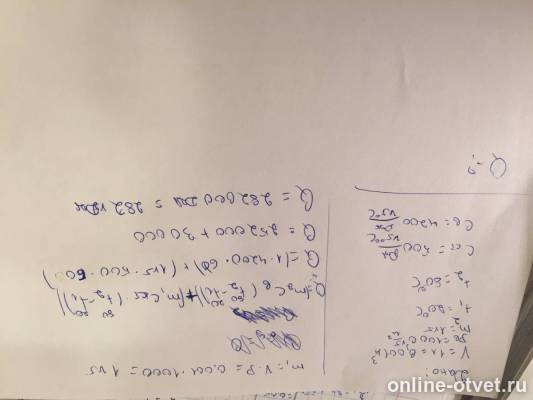 Дано:
V = 1л = 0,001м³
ρв = 1000 кг/м³
m₂ = 1кг
t₁ = 20°C
t₂ = 80°C
Cст = 500 Дж/кг°C
Cв = 4200 Дж/кг°C
Q - ?
m₁ = V · ρ = 0,001 · 1000 = 1 кг
Q = (m₁Cв (t₂ - t₁)) + (m₂Cст (t₂ - t₁))
Q = (1 · 4200 · 60) + (1кг · 500 · 60)
Q = 252000 + 30000
Q = 282000 Дж = 282 кДж
online-otvet.ru